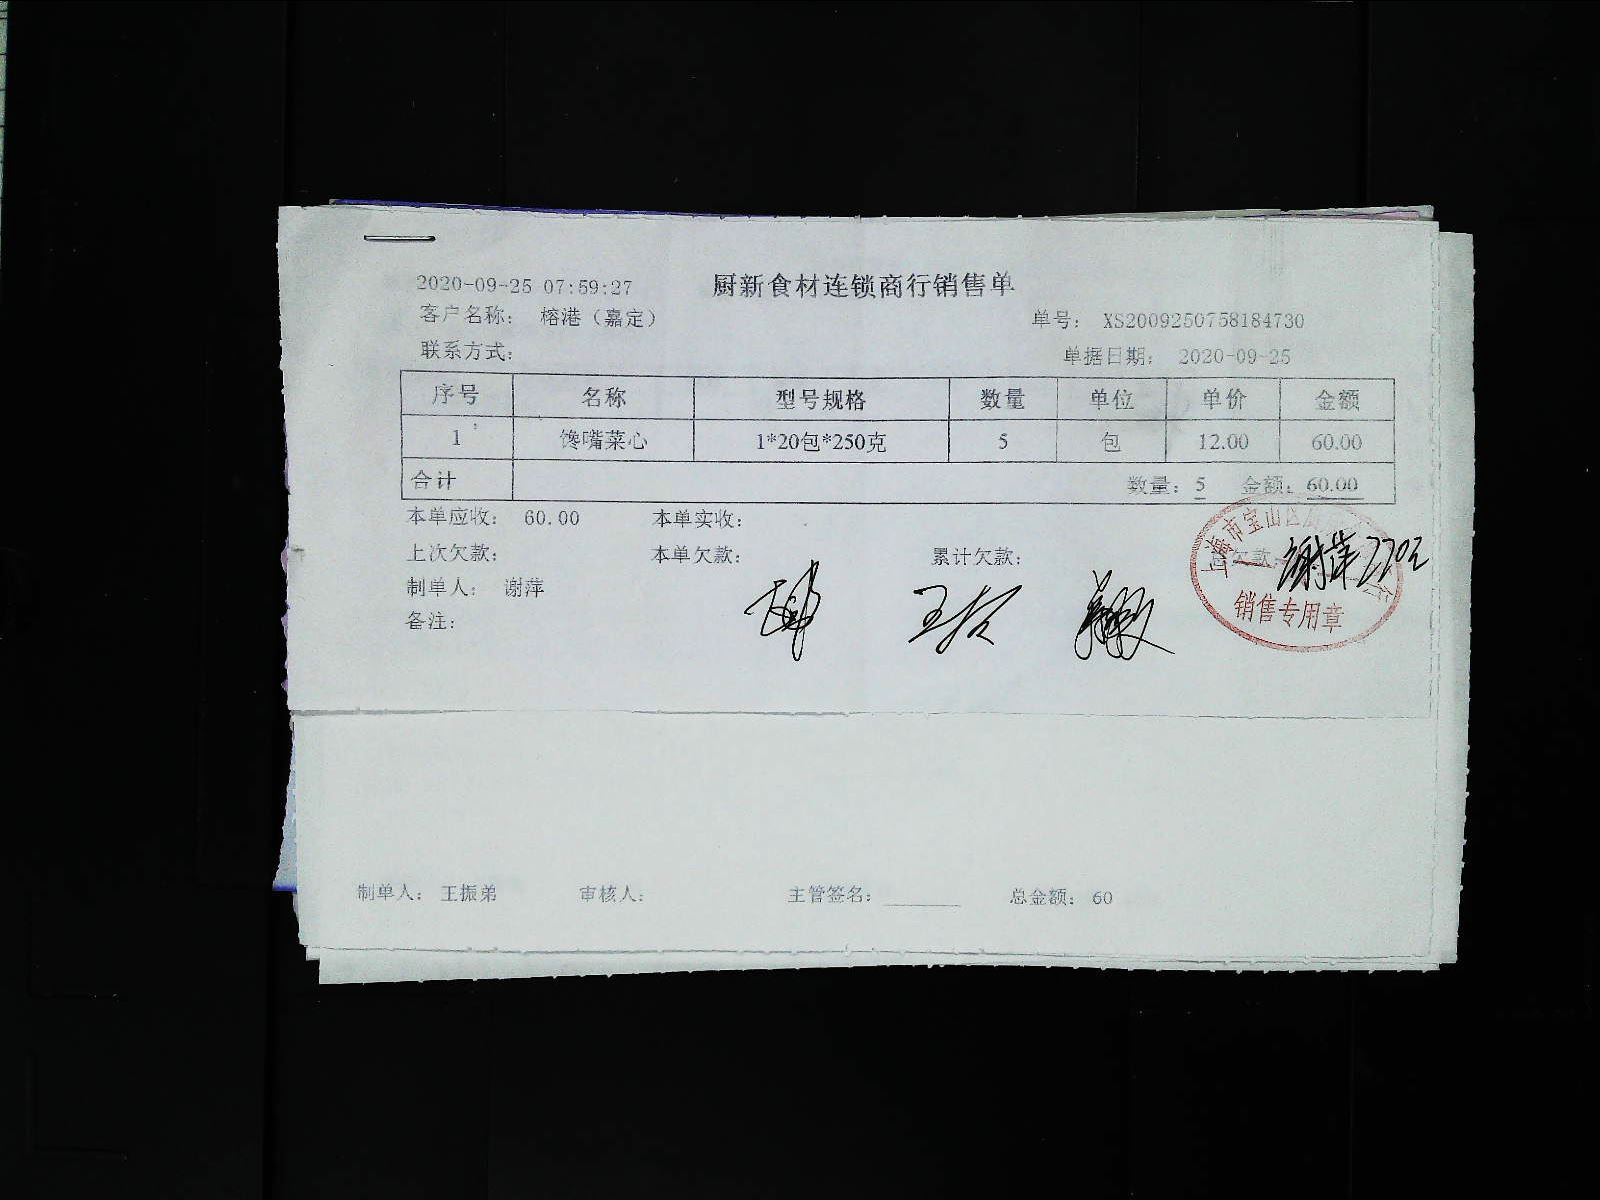 2020-09-25 07:59:27 厨新食材连锁商行销售单
客户名称： 榕港（嘉定） 单号： XS2009250758184730
联系方式： 单据日期： 2020-09-25
序号 名称 型号规格 数量 单位 单价 金额
1 馋嘴菜心 1*20包*250克 5 包 12.00 60.00
合计 数量：5 金额：60.00
本单应收： 60.00 本单实收：
上次欠款： 本单欠款： 累计欠款： 欠款
制单人： 谢萍
备注：
上海市宝山区
谢萍
销售专用章
制单人： 王振弟 审核人： 主管签名： 总金额： 60